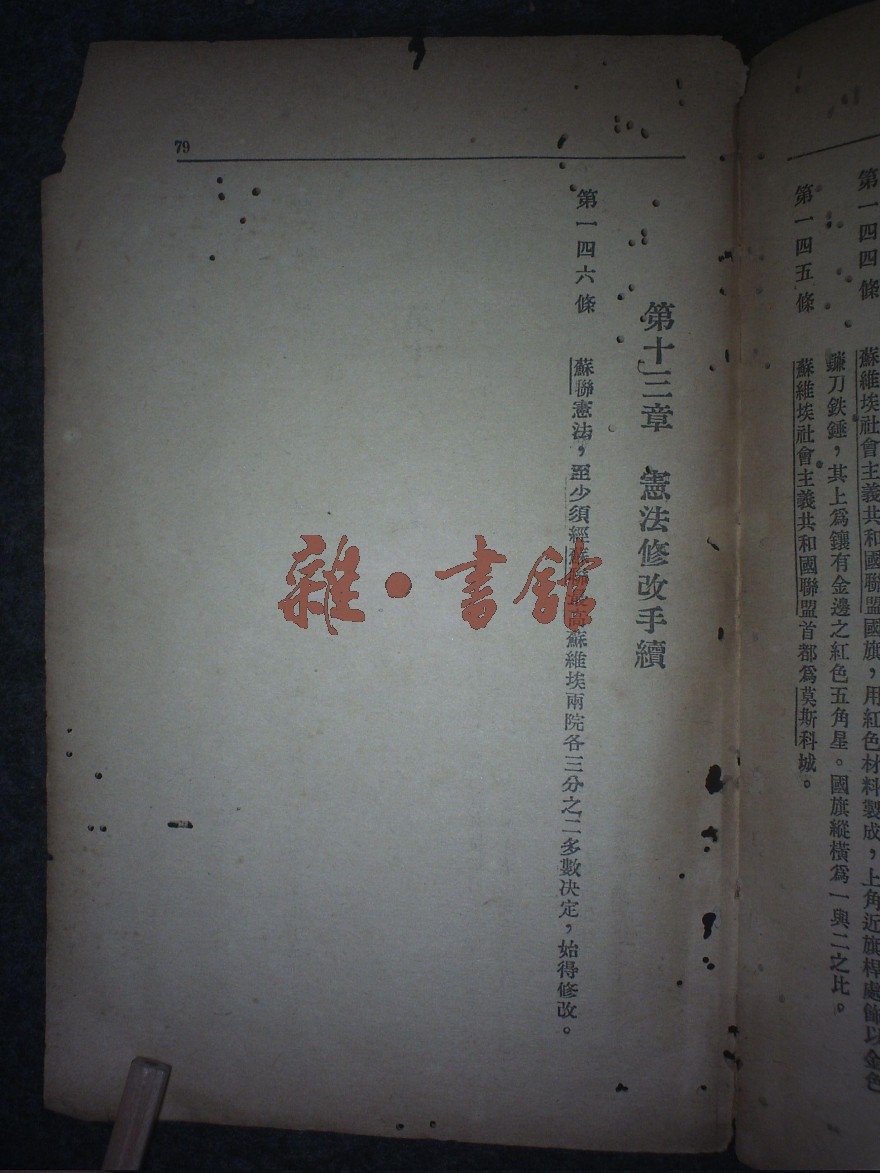 第一四四條　蘇維埃社會主義共和國聯盟國旗，用紅色材料製成，上角近旗桿處飾以金色
鐮刀鉄錘，其上爲鑲有金邊之紅色五角星。國旗縱橫爲一與二之比。
第一四五條　蘇維埃社會主義共和國聯盟首都爲莫斯科城。
79
第十三章　憲法修改手續
第一四六條　蘇聯憲法，至少須經蘇聯最高蘇維埃兩院各三分之二多數决定，始得修改。
雜·書館